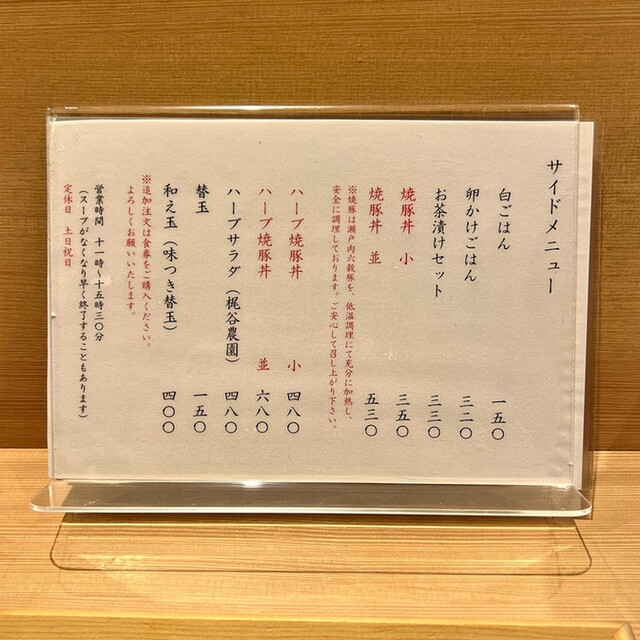 サイドメニュー
白ごはん 一五〇
卵かけごはん 三二〇
お茶漬けセット 三三〇
焼豚丼 小 三五〇
焼豚丼 並 五三〇
※焼豚は瀬戸内六穀豚を、低温調理にて充分に加熱し、
安全に調理しております。ご安心して召し上がり下さい。
ハーブ焼豚丼 小 四八〇
ハーブ焼豚丼 並 六八〇
ハーブサラダ（梶谷農園） 四八〇
替玉 一五〇
和え玉（味つき替玉） 四〇〇
※追加注文は食券をご購入ください。
よろしくお願いいたします。
営業時間 十一時〜十五時三〇分
（スープがなくなり早く終了することもあります）
定休日 土日祝日